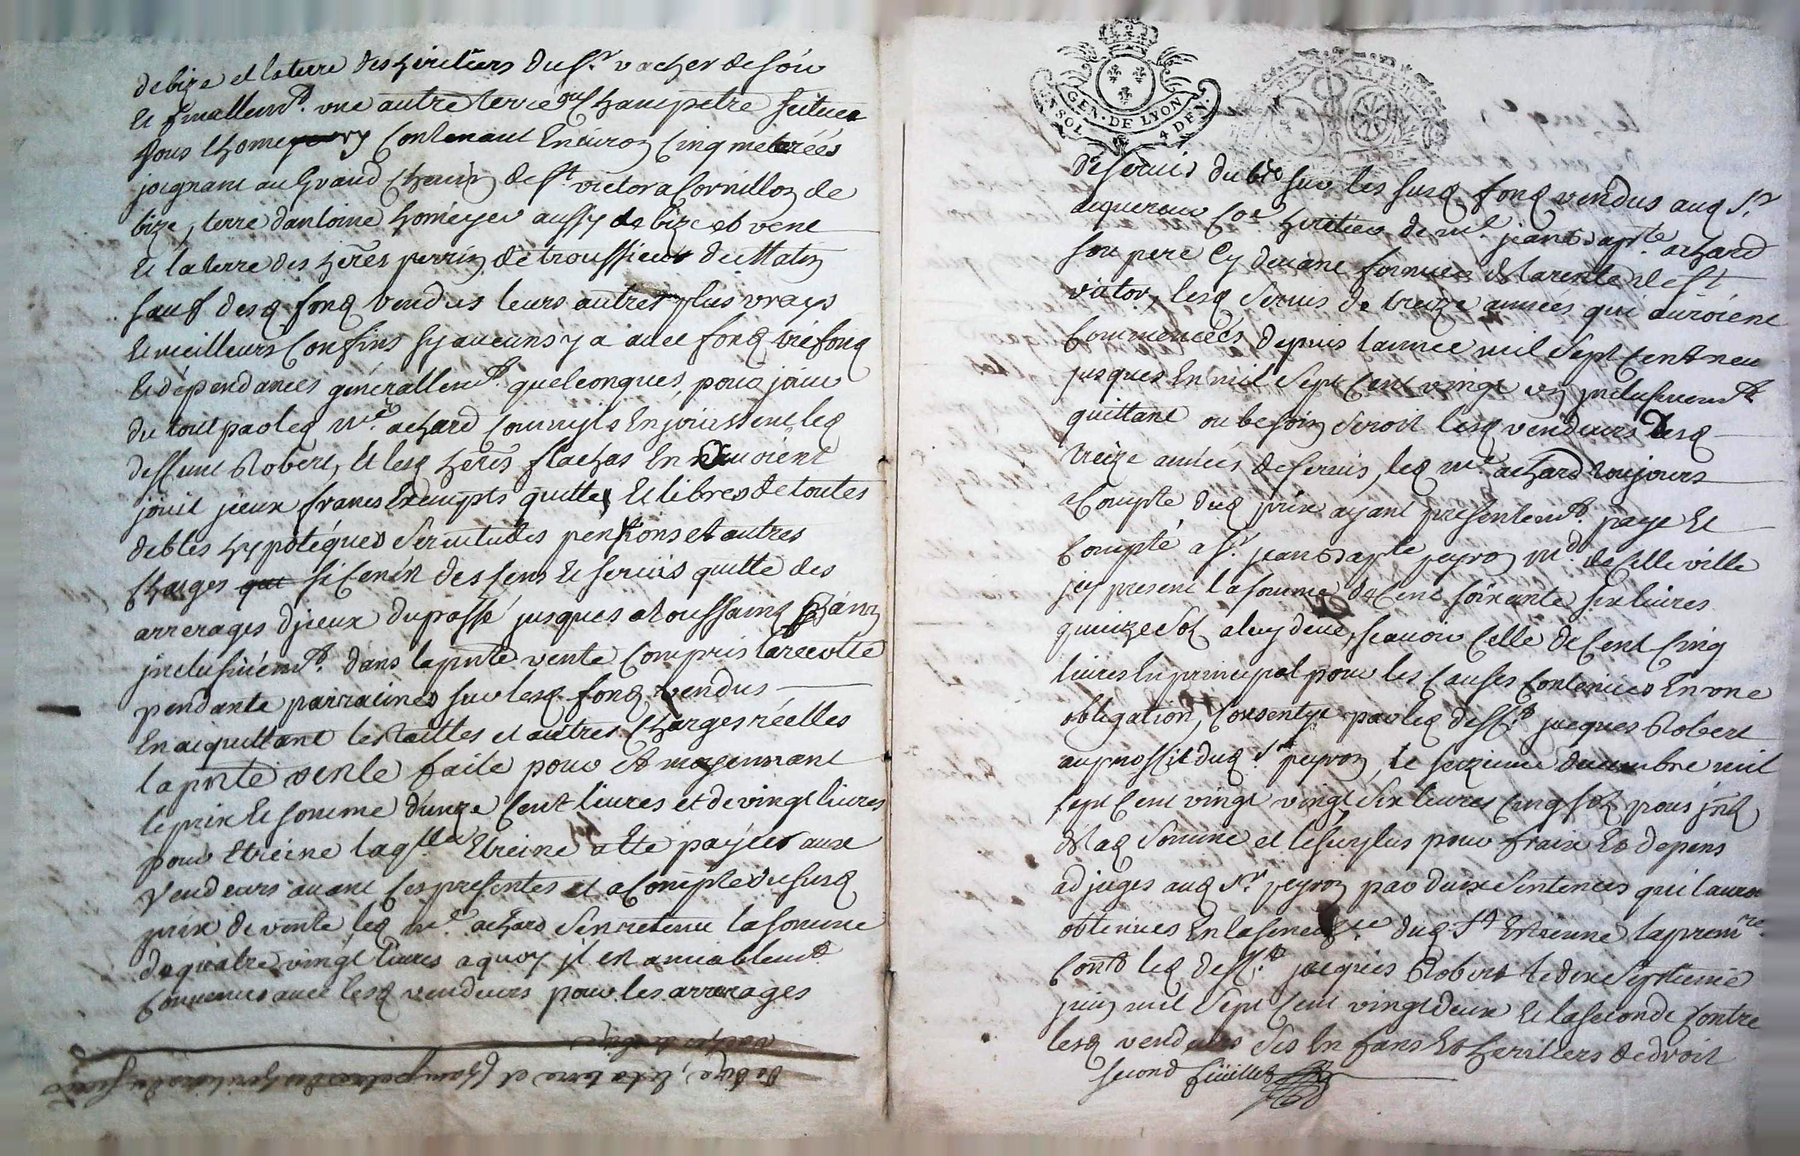 de bize et la terre des heritiers du Sr. vacher de soir
et finallemt. une autre terre ou champetre scituee
sous Lhomeyery contenant environ cinq meterées
joignant au Grand chemin de St victor a Cornillon de
bize, terre dantoine homeyer aussy de bize et vent
et la terre des hers perrin de troussieu de Matin
sauf desq fonq vendus leurs autres plus vrays
et meilleurs Confins sy aucuns y a avec fonq trefonq
et dependances generallemt. quelconques, pour jouir
du tout par leq me. achard Comm ils En jouissent leq
deffunt Robert, et lesq hers flachas En avoient
jouit jceux francs Exempts quittes et libres de toutes
debtes hypotéques Servitudes pensions et autres
charges si Ce n'est des Cens et servis quitte des
arrerages djceux du passé jusques a toussaint
jnclusivemt. dans la pnte vente Compris la recolte
pendante par racines sur lesq fonq vendus
En acquittant les tailles et autres charges réelles
la pnte vente faite pour et moyennant
le prix et somme d'unze Cent livres et de vingt livres
pour Etreine laqlle Etreine a Ete payée aux
Vendeurs avant ces presentes et a Compte du susq
prix de vente leq me. achard s'en retenu la somme
de quatre vingt livres a quoy jl est amiablemt
Convenus avec lesq vendeurs pour les arrerages
de bize, et la terre et champetre des heritiers du
GEN. DE LYON
UN SOL 4 DEN.
De servis dubs sur les susq. fonq vendus auq Sr
acquereur Coe heritier de me jean bapte achard
son pere Cy devant fermier de la rente de St
victor, lesq servis de treize années qui auroient
Commencées depuis lannee mil sept cent neuf
jusques En mil sept cent vingt un jnclusivemt
quittant ou besoin seroit lesq vendeurs desq
treize années de servis, leq me achard toujours
a Compte duq prix ayant presentemt. payé et
Compté a Sr. jean bapte peyron md de Cette ville
jcy present la somme de Cent soixante six livres
quinze sols a luy deue, scavoir Celle de Cent Cinq
livres En principal pour les Causes Contenues En une
obligation, Consentye par leq defft jacques Robert
au proffit duq Sr peyron, le seizieme decembre mil
sept cent vingt vingt six livres Cinq sols pour jnts
de laq somme et le surplus pour fraix et depens
adjugés auq Sr. peyron par deux sentences quil auroit
obtenues En la senechée duq St Etienne la premre.
Contre leq defft jacques Robert le dix septieme
juin mil sept cent vingt deux et la seconde Contre
lesq vendeurs ses Enfans et heritiers de droit
second feuillet